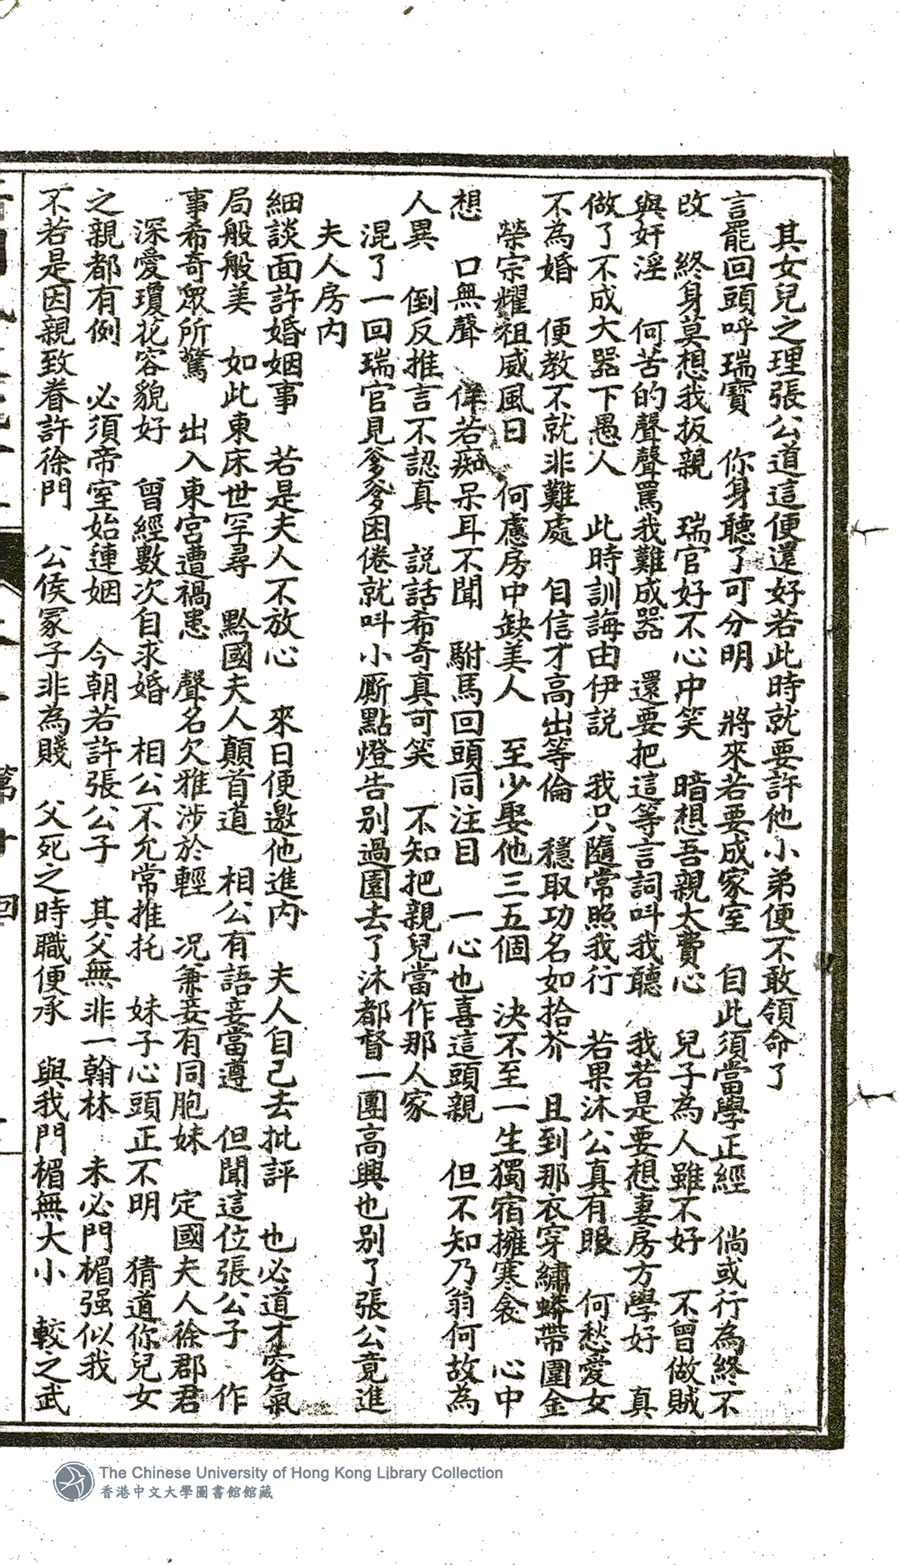 其女兒之理張公道這便還好若此時就要許他小弟便不敢領命了
言罷回頭呼瑞寶　你身聽了可分明　將來若要成家室　自此須當學正經　倘或行為終不
改　終身莫想我扳親　瑞官好不心中笑　暗想吾親太費心　兒子為人雖不好　不曾做賊
與奸淫　何苦的聲聲罵我難成器　還要把這等言詞叫我聽　我若是要想妻房方學好　真
做了不成大器下愚人　此時訓誨由伊説　我只隨常照我行　若果沐公真有眼　何愁愛女
不為婚　便教不就非難處　自信才高出等倫　穩取功名如拾芥　且到那衣穿繡蟒帶圍金
榮宗耀祖威風日　何慮房中缺美人　至少娶他三五個　決不至一生獨宿擁寒衾　心中
想　口無聲　佯若痴呆耳不聞　駙馬回頭同注目　一心也喜這頭親　但不知乃翁何故為
人異　倒反推言不認真　説話希奇真可笑　不知把親兒當作那人家
混了一回瑞官見爹爹困倦就叫小厮點燈告别過園去了沐都督一團高興也别了張公竟進
夫人房内
細談面許婚姻事　若是夫人不放心　來日便邀他進内　夫人自己去批評　也必道才容氣
局般般美　如此東床世罕尋　黔國夫人顛首道　相公有語妾當遵　但聞這位張公子　作
事希奇眾所驚　出入東宮遭禍患　聲名欠雅涉於輕　况兼妾有同胞妹　定國夫人徐郡君
深愛瓊花容貌好　曾經數次自求婚　相公不允常推托　妹子心頭正不明　猜道你兒女
之親都有例　必須帝室始連姻　今朝若許張公子　其父無非一翰林　未必門楣强似我
不若是因親致眷許徐門　公侯冢子非為賤　父死之時職便承　與我門楣無大小　較之武
第十回
The Chinese University of Hong Kong Library Collection
香港中文大學圖書館館藏